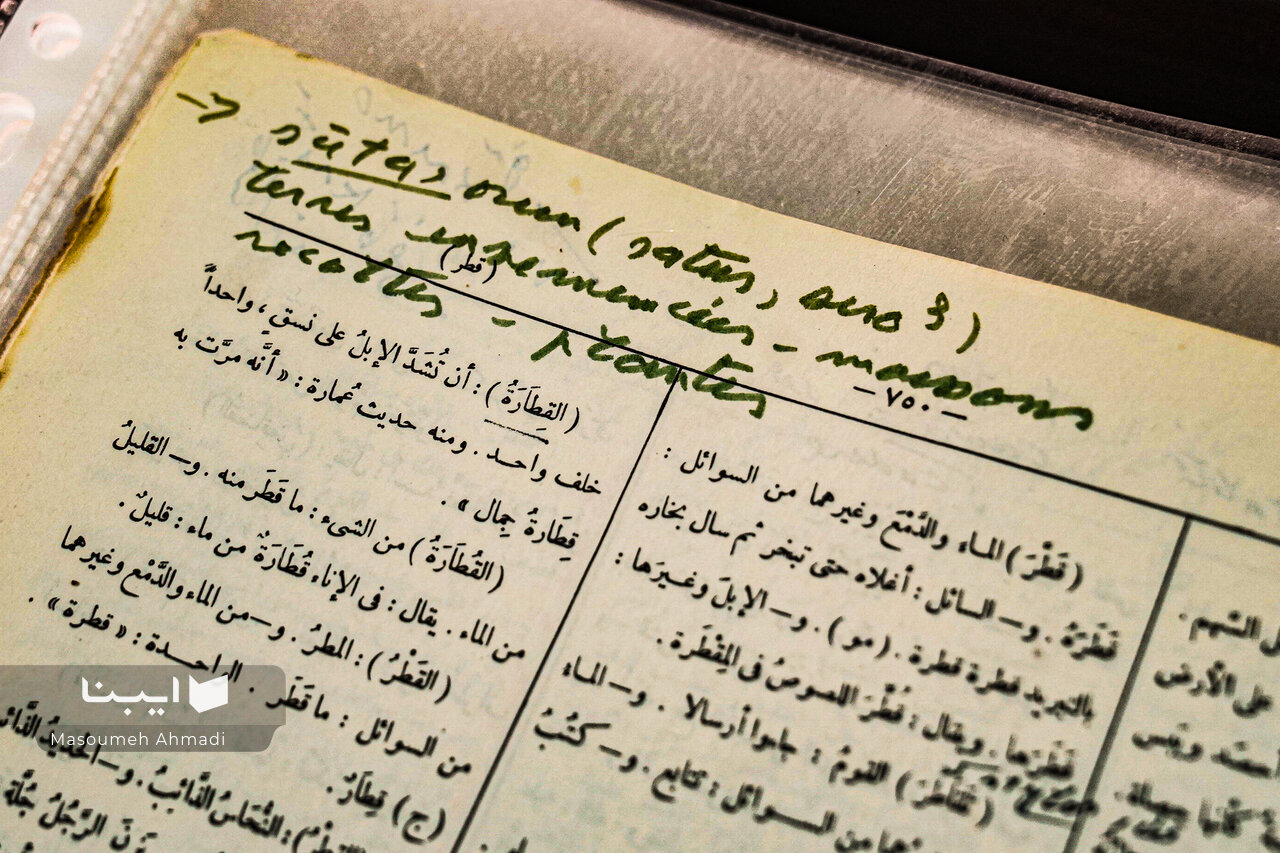 → sata, orum (satus, sero 3)
terres ensemencées - moissons
récoltes - plantes
— ٧٥٠ —
(قطر)
السَّهم .
على الأرض
(قَطَّرَ) الماء والدَّمْعَ وغيرهما من السوائل :
قَطَرَهُ . و— السائل : أغلاه حتى تبخر ثم سال بخاره
بالتبريد قطرة قطرة . (مو) . و— الإبلَ وغيرَها :
قَطَرَها . ويقال : قُطِّرَ اللصوصُ فى المِقْطَرة .
(تَقَاطَرَ) القومُ : جاءوا أرسالا . و— الماء
من السوائل : تتابع . و— كتُبُ
(القِطَارَةُ) : أن تُشَدَّ الإبلُ على نسقٍ ، واحداً
خلف واحد . ومنه حديث عُمارة : « أنَّه مرَّت به
قِطَارةُ جِمال » .
(القُطَارَةُ) من الشىء : ما قَطَر منه . و— القليلُ
من الماء . يقال : فى الإناء قُطَارَةٌ من ماء : قليلٌ .
(القَطْرُ) : المطرُ . و— من الماء والدَّمْع وغيرهما
من السوائل : ما قَطَر . الواحدة : « قطرة » .
(ج) قِطَارٌ .
النُّحَاسُ الذَّائبُ . و— الحديدُ
الرَّجُلُ جُلَّة
ایبنا
Masoumeh Ahmadi